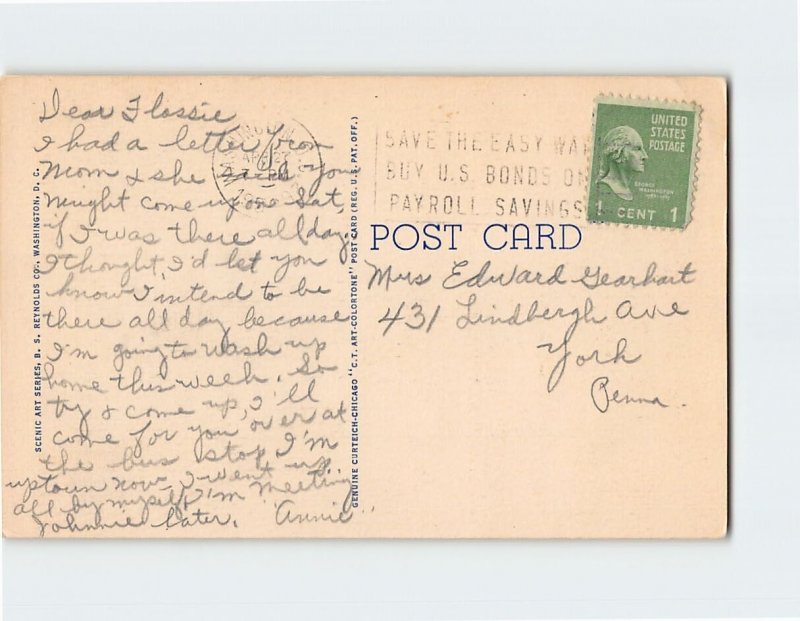 Dear Flossie
I had a letter from
Mom & she said you
might come up on Sat,
if I was there all day.
I thought I'd let you
know I intend to be
there all day because
I'm going to wash up
home this week. So
try & come up, I'll
come for you over at
the bus stop I'm
uptown now I went up
all by myself, I'm meeting
Johnnie later. Annie
SCENIC ART SERIES, B. S. REYNOLDS CO., WASHINGTON, D. C.
GENUINE CURTEICH-CHICAGO "C.T. ART-COLORTONE" POST CARD (REG. U.S. PAT. OFF.)
SAVE THE EASY WAY
BUY U.S. BONDS ON
PAYROLL SAVINGS
UNITED
STATES
POSTAGE
GEORGE
WASHINGTON
1 CENT 1
POST CARD
Mrs Edward Gearhart
431 Lindbergh Ave
York
Penna.